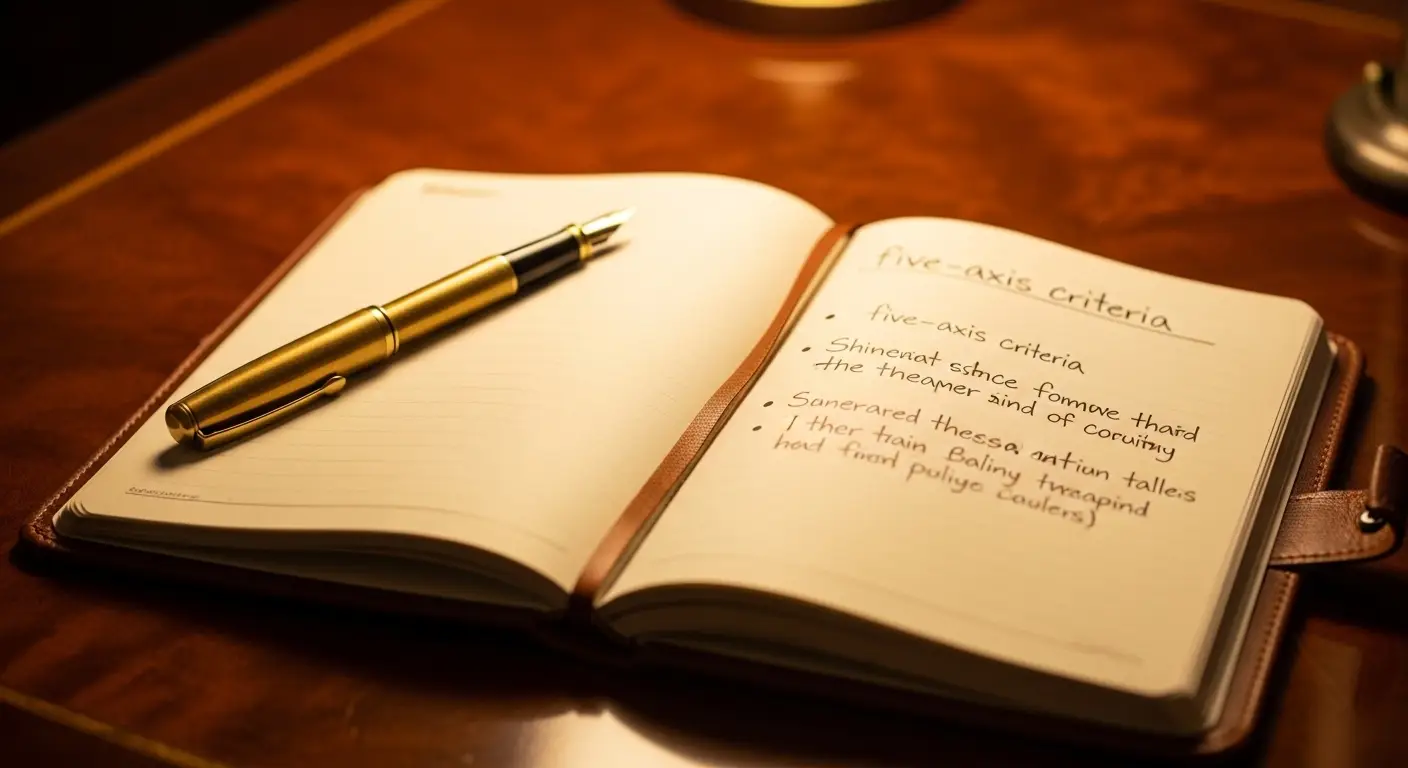 five-axis criteria
• five-axis criteria
• Shineriat sshce formwe thard
the theaper sind of coruitny
• Sanerared thessa antiun talles
• I ther train Baliny tweapind
had fired puliye caulers)